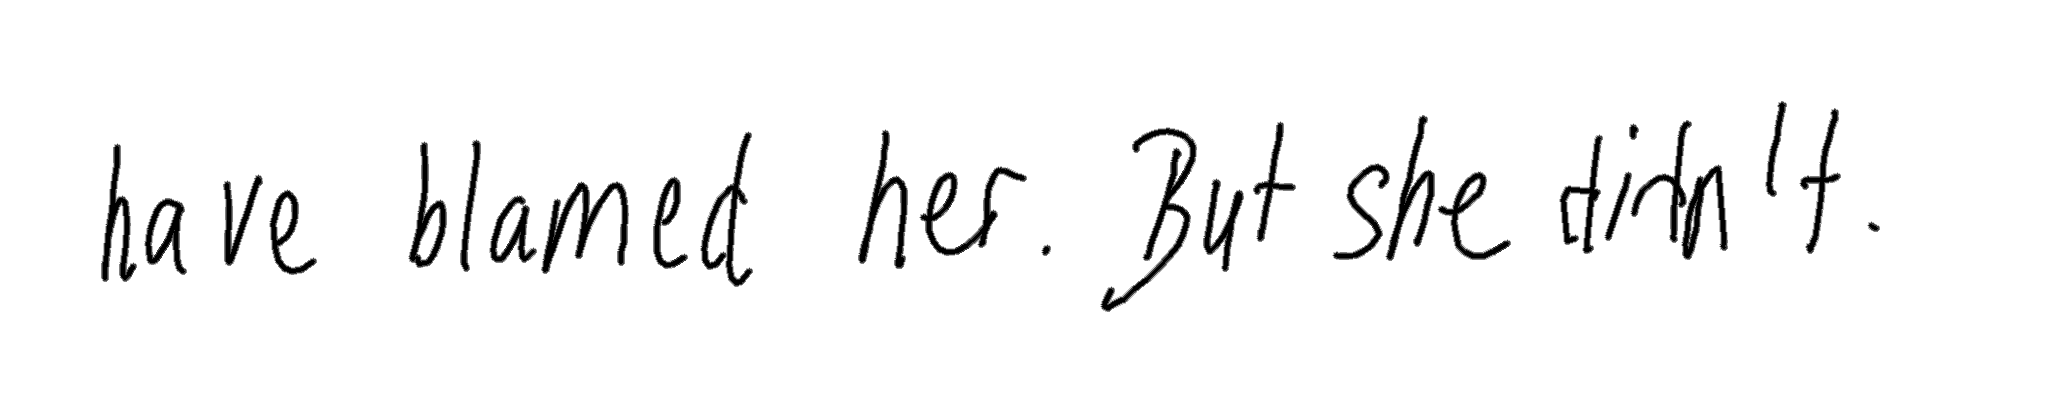 have blamed her. But she didn't.